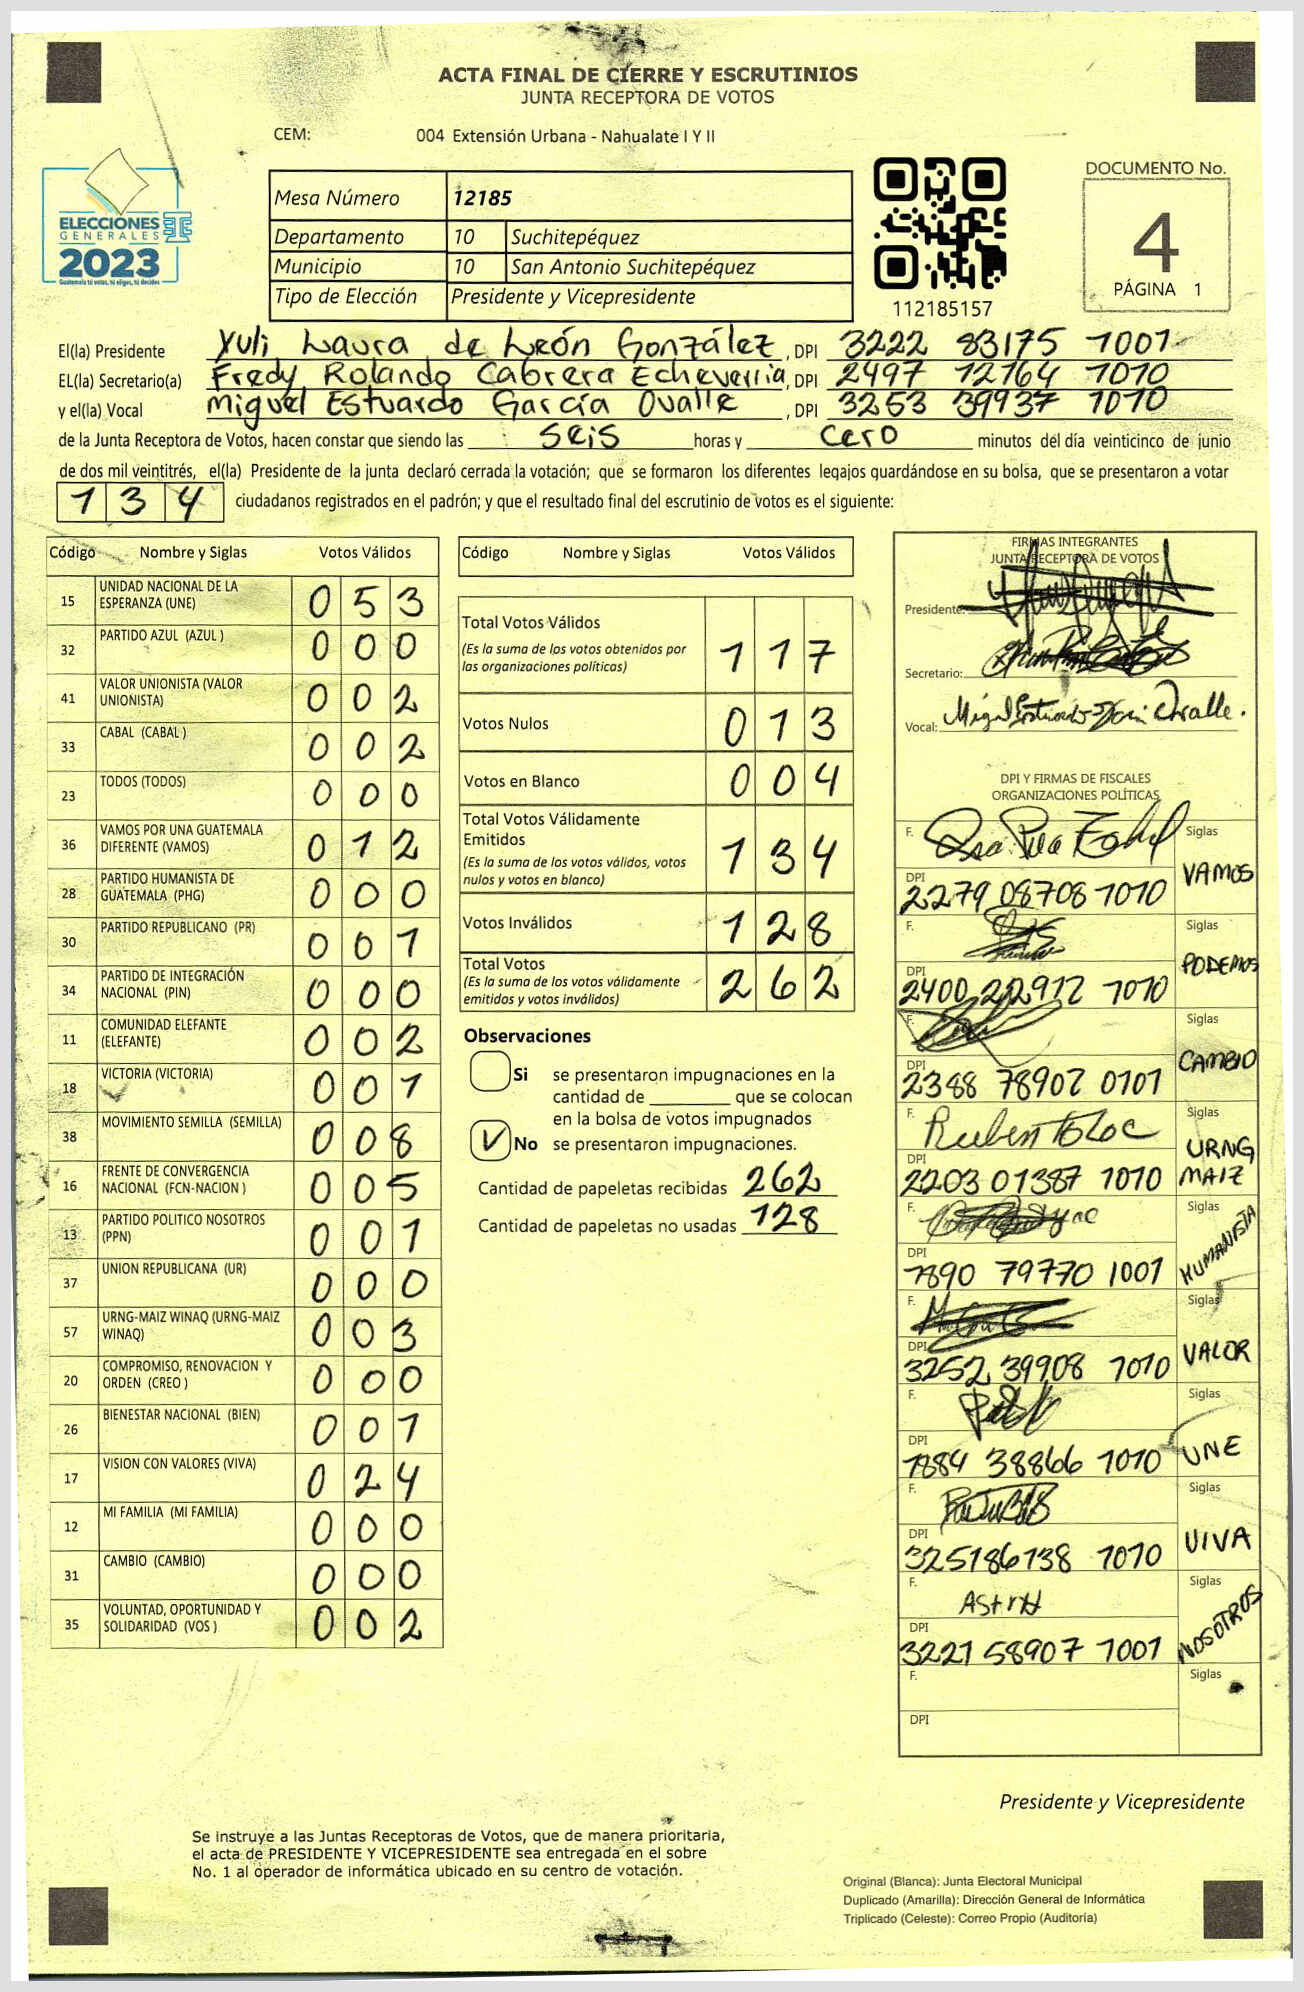 ACTA FINAL DE CIERRE Y ESCRUTINIOS
JUNTA RECEPTORA DE VOTOS
CEM: 004 Extensión Urbana - Nahualate I Y II
ELECCIONES
GENERALES
2023
Guatemala tú votas, tú eliges, tú decides
Mesa Número 12185
Departamento 10 Suchitepéquez
Municipio 10 San Antonio Suchitepéquez
Tipo de Elección Presidente y Vicepresidente
112185157
DOCUMENTO No.
4
PÁGINA 1
El(la) Presidente Yuli Laura de León González, DPI 3222 83175 1001
EL(la) Secretario(a) Fredy Rolando Cabrera Echeverria, DPI 2497 12164 1010
y el(la) Vocal Miguel Estuardo García Ovalle, DPI 3253 39937 1010
de la Junta Receptora de Votos, hacen constar que siendo las seis horas y cero minutos del día veinticinco de junio
de dos mil veintitrés, el(la) Presidente de la junta declaró cerrada la votación; que se formaron los diferentes legajos guardándose en su bolsa, que se presentaron a votar
134 ciudadanos registrados en el padrón; y que el resultado final del escrutinio de votos es el siguiente:
Código Nombre y Siglas Votos Válidos
15 UNIDAD NACIONAL DE LA ESPERANZA (UNE) 053
32 PARTIDO AZUL (AZUL ) 000
41 VALOR UNIONISTA (VALOR UNIONISTA) 002
33 CABAL (CABAL ) 002
23 TODOS (TODOS) 000
36 VAMOS POR UNA GUATEMALA DIFERENTE (VAMOS) 012
28 PARTIDO HUMANISTA DE GUATEMALA (PHG) 000
30 PARTIDO REPUBLICANO (PR) 001
34 PARTIDO DE INTEGRACIÓN NACIONAL (PIN) 000
11 COMUNIDAD ELEFANTE (ELEFANTE) 002
18 VICTORIA (VICTORIA) 001
38 MOVIMIENTO SEMILLA (SEMILLA) 008
16 FRENTE DE CONVERGENCIA NACIONAL (FCN-NACION ) 005
13 PARTIDO POLITICO NOSOTROS (PPN) 001
37 UNION REPUBLICANA (UR) 000
57 URNG-MAIZ WINAQ (URNG-MAIZ WINAQ) 003
20 COMPROMISO, RENOVACION Y ORDEN (CREO ) 000
26 BIENESTAR NACIONAL (BIEN) 001
17 VISION CON VALORES (VIVA) 024
12 MI FAMILIA (MI FAMILIA) 000
31 CAMBIO (CAMBIO) 000
35 VOLUNTAD, OPORTUNIDAD Y SOLIDARIDAD (VOS ) 002
Código Nombre y Siglas Votos Válidos
Total Votos Válidos
(Es la suma de los votos obtenidos por las organizaciones políticas) 117
Votos Nulos 013
Votos en Blanco 004
Total Votos Válidamente Emitidos
(Es la suma de los votos válidos, votos nulos y votos en blanco) 134
Votos Inválidos 128
Total Votos
(Es la suma de los votos válidamente emitidos y votos inválidos) 262
Observaciones
Si se presentaron impugnaciones en la
cantidad de ________ que se colocan
en la bolsa de votos impugnados
No se presentaron impugnaciones.
Cantidad de papeletas recibidas 262
Cantidad de papeletas no usadas 128
FIRMAS INTEGRANTES
JUNTA RECEPTORA DE VOTOS
Presidente:
Secretario:
Vocal:
DPI Y FIRMAS DE FISCALES
ORGANIZACIONES POLÍTICAS
F. Siglas VAMOS
DPI 2279 08708 1010
F. Siglas PODEMOS
DPI 2400 1010
F. Siglas CAMBIO
DPI 2388 78902 0101
F. Ruben Siglas URNG MAIZ
DPI 2203 01387 1010
F. Siglas HUMANISTA
DPI 1890 79770 1001
F. Siglas VALOR
DPI 3252 39908 1010
F. Siglas UNE
DPI 1884 38866 1010
F. Siglas VIVA
DPI 325186138 1010
F. Siglas NOSOTROS
DPI 3221 58907 1001
F. Siglas
DPI
Presidente y Vicepresidente
Se instruye a las Juntas Receptoras de Votos, que de manera prioritaria,
el acta de PRESIDENTE Y VICEPRESIDENTE sea entregada en el sobre
No. 1 al operador de informática ubicado en su centro de votación.
Original (Blanca): Junta Electoral Municipal
Duplicado (Amarilla): Dirección General de Informática
Triplicado (Celeste): Correo Propio (Auditoría)